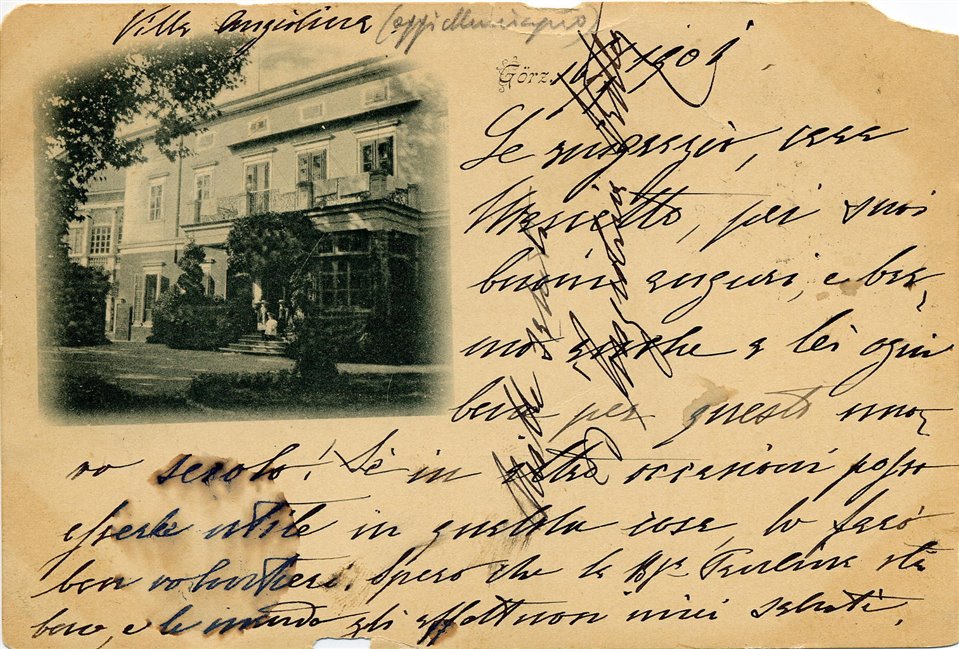 Villa Angiolina (oggi Municipio)
Görz, 1901
La ringrazio, cara
Marietta, pei suoi
buoni auguri, e bra-
mo anche a lei ogni
bene per questo nuo-
vo secolo! Se in altre occasioni posso
esserle utile in qualche cosa, lo farò
ben volentieri. Spero che la Paulina stia
bene, e le mando gli affettuosi miei saluti,